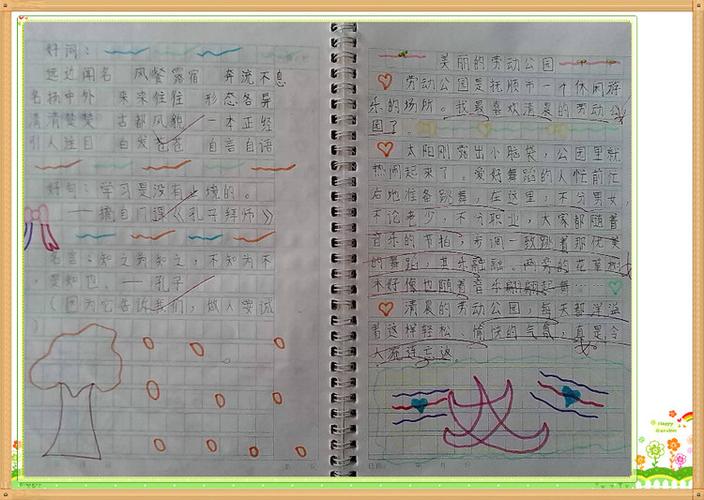 好词：
远近闻名 风餐露宿 奔流不息
名扬中外 来来往往 形态各异
清清楚楚 古都风貌 一本正经
引人注目 白发苍苍 自言自语
好句：学习是没有止境的。
——摘自门课《孔子拜师》
名言：知之为知之，不知为不
知，是知也。——孔子
（因为它告诉我们，做人要诚
）
美丽的劳动公园
劳动公园是抚顺市一个休闲游
乐的场所。我最喜欢清晨的劳动公
园了。
太阳刚露出小脑袋，公园里就
热闹起来了。爱好舞蹈的人忙前忙
后地准备跳舞，在这里，不分男女，
不论老少，不分职业，大家都随着
音乐的节拍，步调一致跳着那优美
的舞蹈，其乐融融。两旁的花草树
木好像也随着音乐翩翩起舞……
清晨的劳动公园，每天都洋溢
着这样轻松、愉快的气氛，真是令
人流连忘返。
Happy